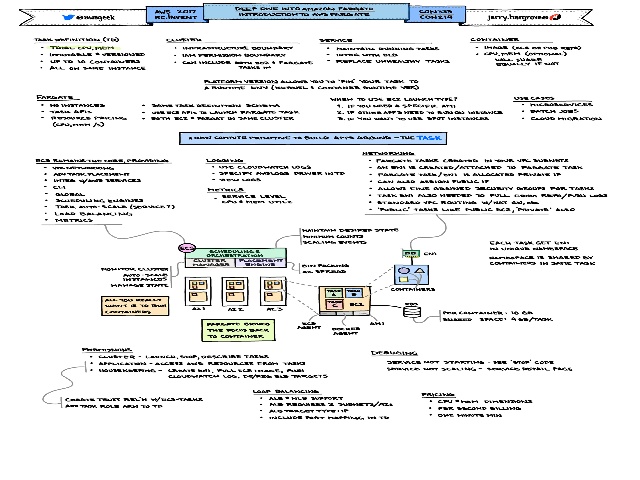 @awsgeek
AWS 2017
RE:INVENT
DEEP DIVE INTO AMAZON FARGATE
INTRODUCTION TO AWS FARGATE
CON333
CON214
jerry.hargrove
TASK DEFINITION (TD)
• TOTAL CPU, MEM
• IMMUTABLE + VERSIONED
• UP TO 10 CONTAINERS
• ALL ON SAME INSTANCE
CLUSTER
• INFRASTRUCTURE BOUNDARY
• IAM PERMISSION BOUNDARY
• CAN INCLUDE BOTH EC2 & FARGATE
TASKS
SERVICE
• MAINTAIN RUNNING TASKS
• INTEG WITH ELB
• REPLACE UNHEALTHY TASKS
CONTAINER
• IMAGE
• CPU, MEM (OPTIONAL)
WILL SHARE
EQUALLY IF NOT
PLATFORM VERSION ALLOWS YOU TO "PIN" YOUR TASK TO
A RUNTIME ENV (KERNEL & CONTAINER RUNTIME VER)
FARGATE
• NO INSTANCES
• TASK APIS
• RESOURCE PRICING
(CPU, MEM /S)
• SAME TASK DEFINITION SCHEMA
• USE ECS APIS TO LAUNCH FARGATE TASK
• BOTH EC2 & FARGATE IN SAME CLUSTER
WHEN TO USE EC2 LAUNCH TYPE?
1. IF YOU NEED A SPECIFIC
2. IF OTHER APPS NEED TO RUN ON INSTANCE
3. IF YOU WANT TO USE SPOT INSTANCES
USE CASES
• MICROSERVICES
• BATCH JOBS
• CLOUD MIGRATION
A NEW COMPUTE PRIMITIVE TO BUILD APPS AROUND - THE TASK
• ADV TASK PLACEMENT
• INTEG W/AWS SERVICES
• CLI
• GLOBAL
• SCHEDULING ENGINES
• LOAD BALANCING
• METRICS
LOGGING
• USE CLOUDWATCH LOGS
• SPECIFY AWSLOGS DRIVER IN TD
• VIEW LOGS
METRICS
• SERVICE LEVEL
CPU & MEM UTIL
NETWORKING
• FARGATE TASKS CREATED IN YOUR VPC SUBNETS
• AN ENI IS CREATED/ATTACHED TO FARGATE TASK
• FARGATE TASK/ENI IS ALLOCATED PRIVATE IP
• CAN ALSO ASSIGN PUBLIC IP
• ALLOWS FINE GRAINED SECURITY GROUPS FOR TASKS
• TASK ENI ALSO NEEDED TO PULL FROM REPO/PUSH LOGS
• STANDARD VPC ROUTING
• "PUBLIC" TASKS LIKE PUBLIC EC2, "PRIVATE" ALSO
ECS
SCHEDULING &
ORCHESTRATION
CLUSTER
MANAGER
PLACEMENT
ENGINE
MAINTAIN DESIRED STATE
MINIMUM COUNTS
SCALING EVENTS
BIN PACKING
OR SPREAD
MONITOR CLUSTER
AUTO SCALE
INSTANCES
MANAGE STATE
ALL YOU REALLY
WANT IS TO RUN
CONTAINERS
AZ 1
AZ 2
AZ 3
FARGATE BRINGS
THE FOCUS BACK
TO CONTAINER
EC2
ECS
AGENT
DOCKER
AGENT
AMI
ENI
CONTAINERS
EBS
EACH TASK GET ENI
IN UNIQUE NAMESPACE
NAMESPACE IS SHARED BY
CONTAINERS IN SAME TASK
PER CONTAINER: 10 GB
SHARED SPACE: 4 GB/TASK
PERMISSIONS
• CLUSTER - LAUNCH, STOP, DESCRIBE TASKS
• APPLICATION - ACCESS AWS RESOURCES FROM TASKS
• HOUSEKEEPING - CREATE ENI, PULL ECR IMAGE, PUSH
CLOUDWATCH LOG, DE/REG ELB TARGETS
CREATE TRUST REL'N W/ECS-TASKS
ADD TASK ROLE ARN TO TD
DEBUGGING
SERVICE NOT STARTING - SEE "STOP" CODE
SERVICE NOT SCALING - SERVICE DETAIL PAGE
LOAD BALANCING
• ALB + NLB SUPPORT
• ALB REQUIRES 2 SUBNETS/AZS
• ALB TARGET TYPE: IP
• INCLUDE PORT MAPPING IN TD
PRICING
• CPU + MEM DIMENSIONS
• PER SECOND BILLING
• ONE MINUTE MIN